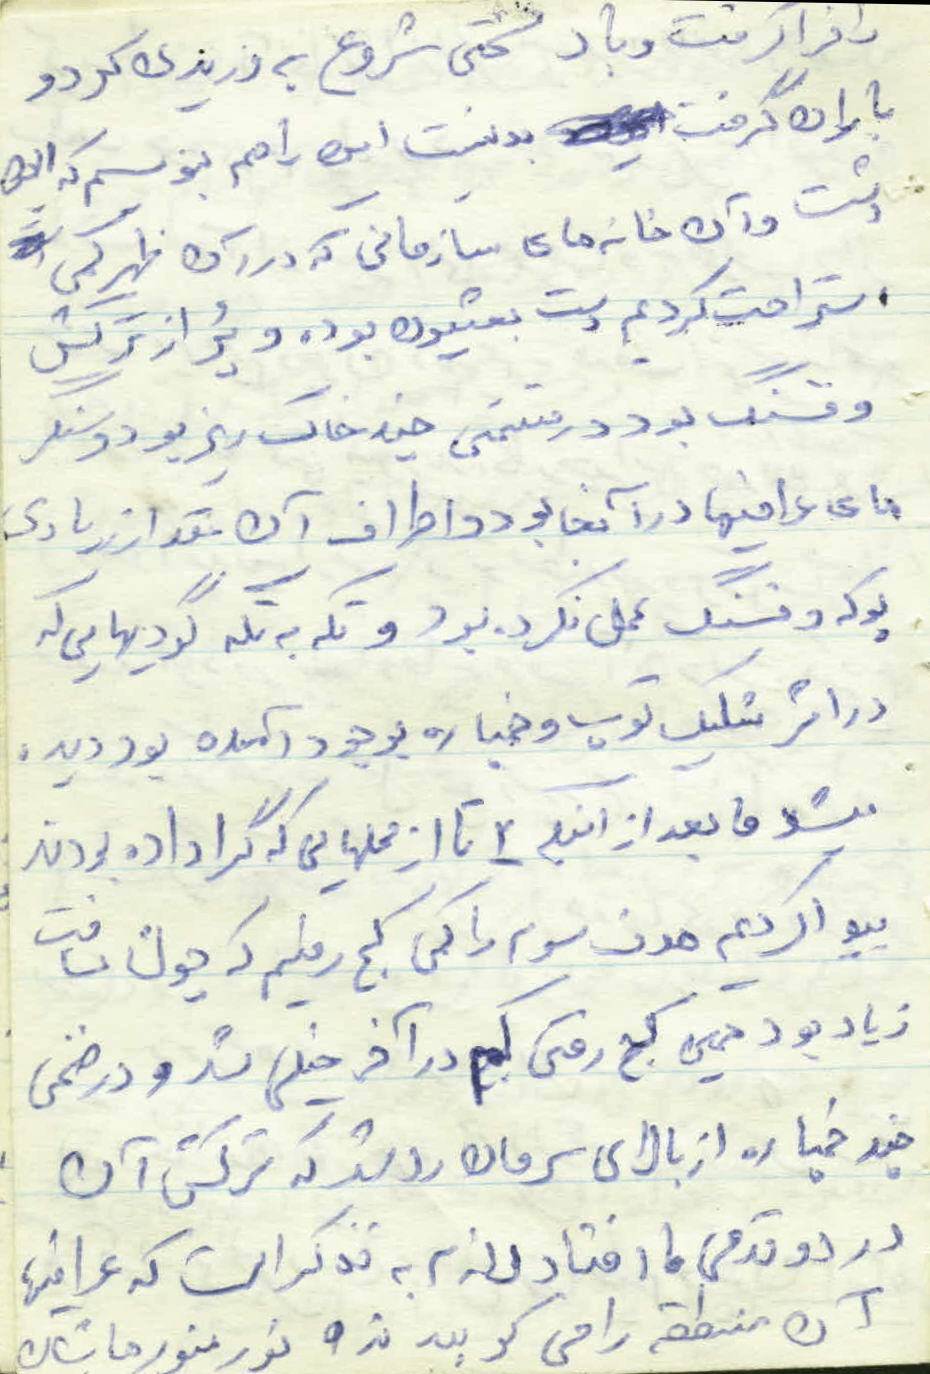 را فرا گرفت و باد سختی شروع به وزیدن کرد و
باران گرفت بد نیست این را هم بنویسم که این
دشت و آن خانه های سازمانی که در آن ظهر کمی
استراحت کردیم پست بعثیون بوده و پر از ترکش
و فشنگ بود و در قسمتی چند خاک ریز بود و سنگر
های عراقیها در آنجا بود و اطراف آن مقدار زیادی
پوکه و فشنگ عمل نکرده بود و تکه به تکه گودیهایی که
در اثر شلیک توپ و خمپاره بوجود آمده بود دیده
میشد ما بعد از اینکه ۲ تا از محلهایی که گرا داده بودند
پیدا کردیم هدف سوم را کمی کج رفتیم که چون مسافت
زیاد بود همین کج رفتن کم در آخر خیلی شد و در ضمن
چند خمپاره از بالای سرمان رد شد که ترکش آن
در دو قدمی ما افتاد لازم به تذکر است که عراقیها
آن منطقه را می کوبیدند و نور منورهاشان